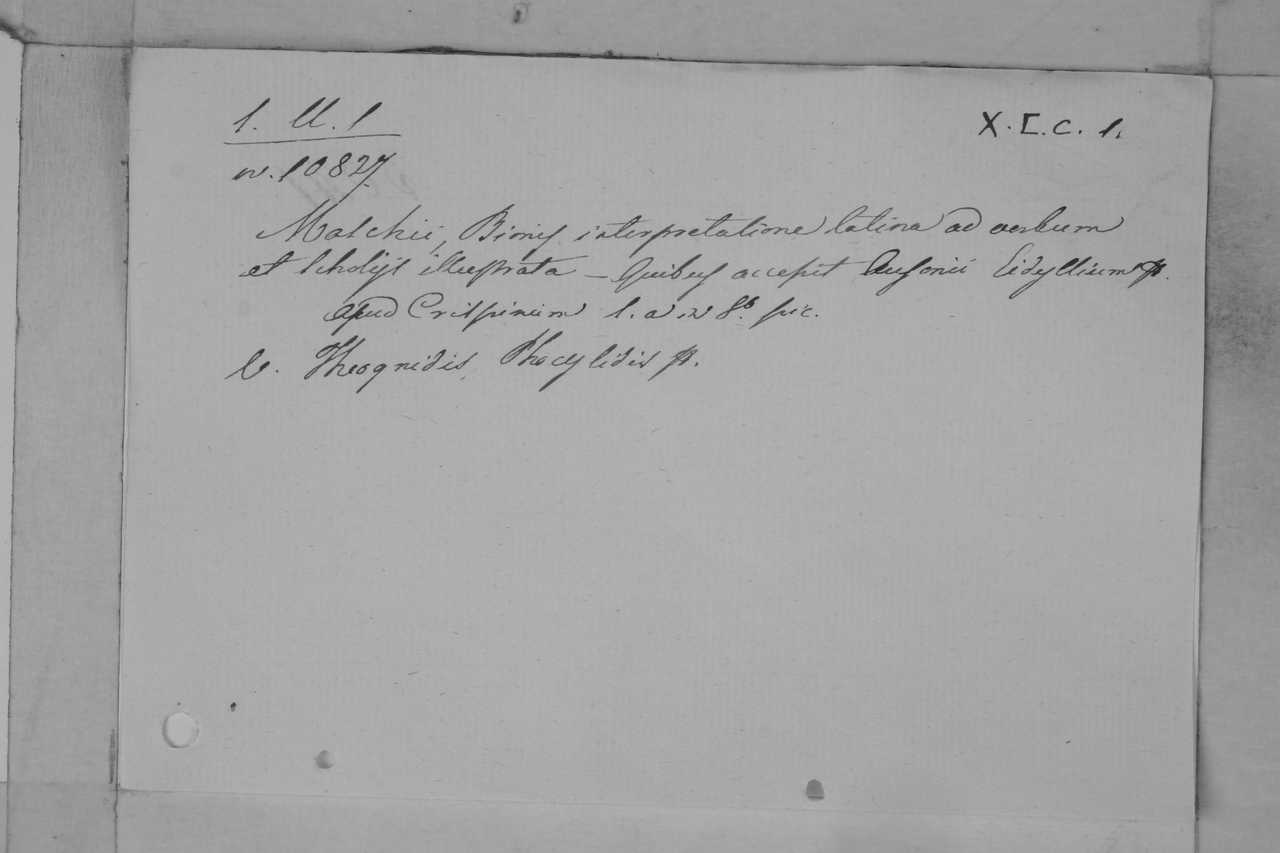 1. U. 1
X. E. c. 1.
n. 10827
Malchii, Bionis interpretatione latina ad verbum
et scholijs illustrata – Quibus accepit Ausonii Eidyllium p.
apud Crispinum s. a in 8° pic.
v. Theognidis, Phocylidis p.